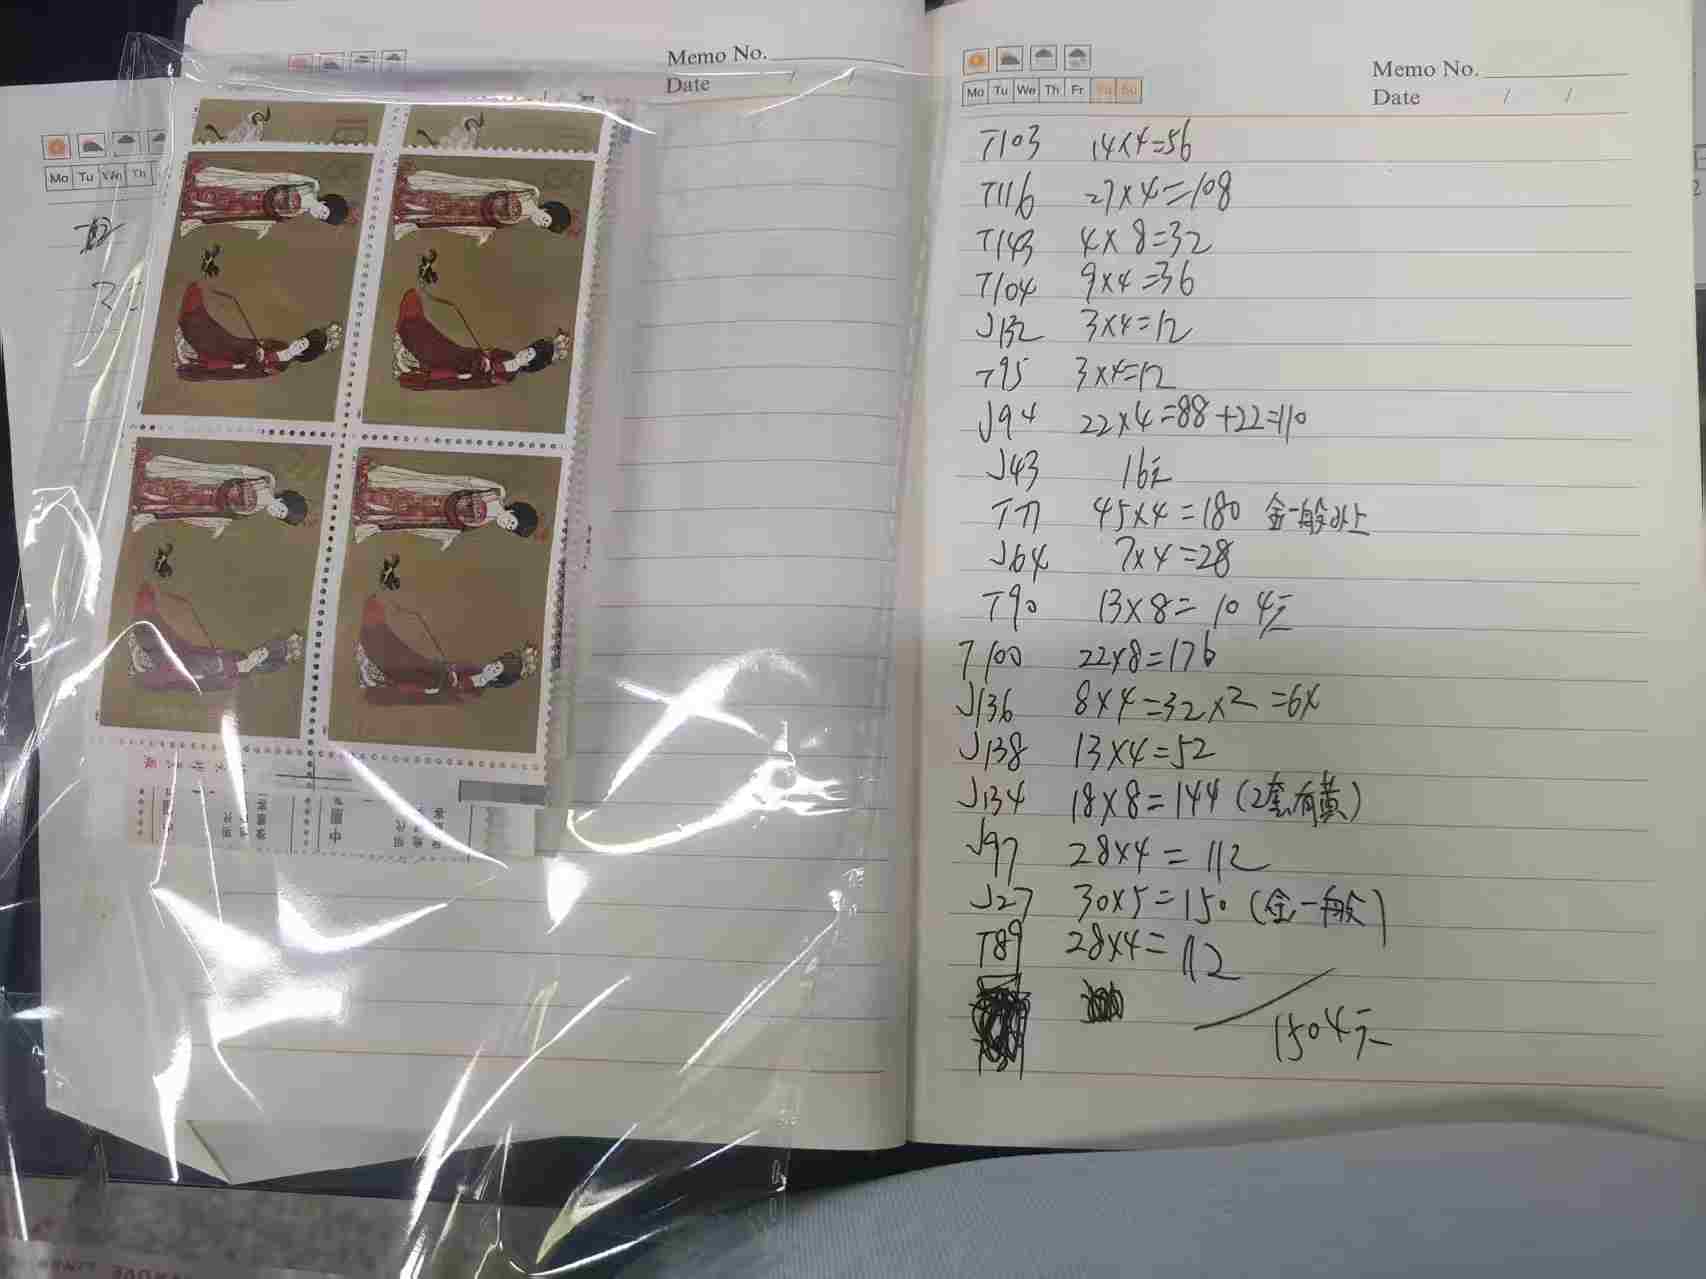 Memo No.
Date / /
Mo Tu We Th
Memo No.
Date / /
Mo Tu We Th Fr Sa Su
T103 14×4=56
T116 27×4=108
T143 4×8=32
T104 9×4=36
J132 3×4=12
T95 3×4=12
J94 22×4=88+22=110
J43 16元
T77 45×4=180 金一般以上
J64 7×4=28
T90 13×8=104元
T100 22×8=176
J136 8×4=32×2=64
J138 13×4=52
J134 18×8=144(2套有黄)
J97 28×4=112
J27 30×5=150(金一般)
T89 28×4=112
1504元
中国